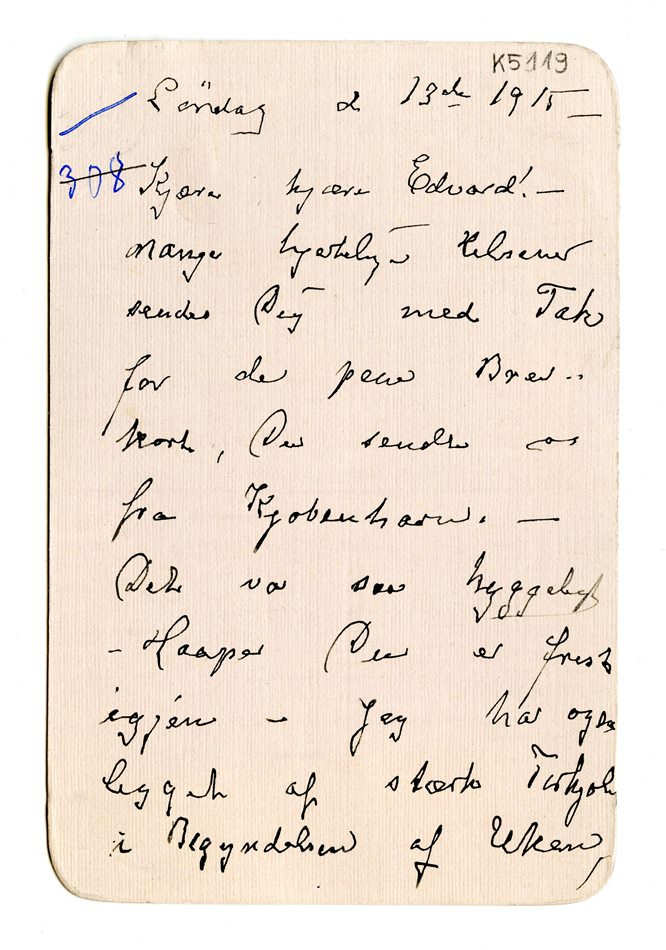 K5119
Löndag d 13de 1915
308 Kjære kjære Edvard! —
mange hjertelige Hilsener
sendes Dig med Tak
for de pene Brev-
kort, Du sendte os
fra Kjøbenhavn. —
Dette var saa hyggeligt
- Haaper Du er frisk
igjen - Jeg har ogsaa
ligget af stærk Forkjøl
i Begyndelsen af Uken,